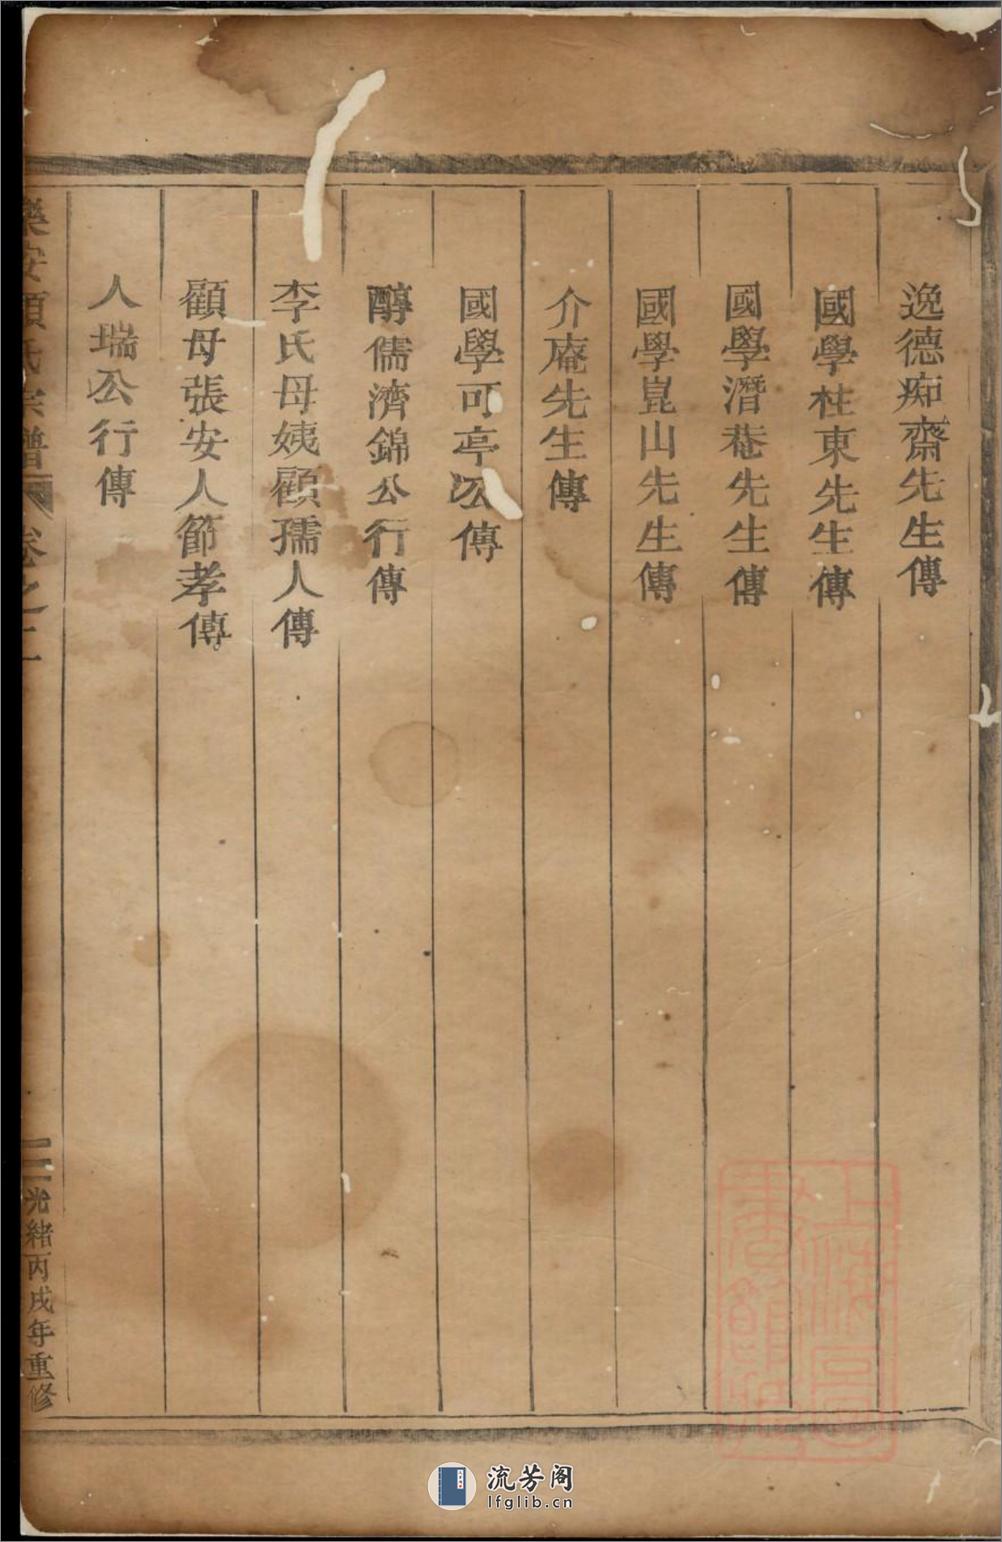 逸德痴齋先生傳
國學柱東先生傳
國學潛菴先生傳
國學崑山先生傳
介庵先生傳
國學可亭公傳
醇儒濟錦公行傳
李氏母姨顧孺人傳
顧母張安人節孝傳
人瑞公行傳
樂安顧氏宗譜 卷之二
三 光緒丙戌年重修
上海圖書館藏
流芳阁
lfglib.cn